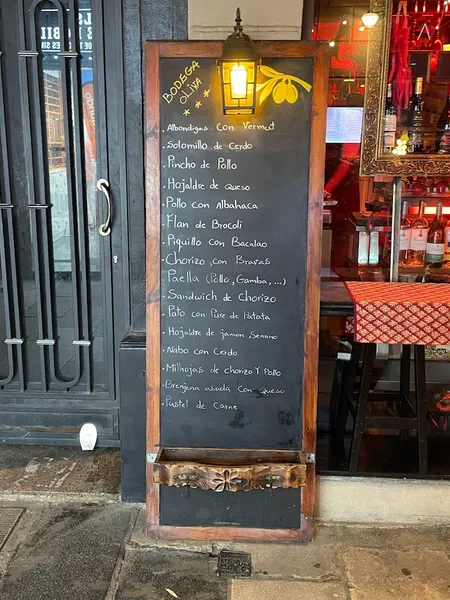 BODEGA
OLIVA
. Albondigas con Vermut
. Solomillo de Cerdo
. Pincho de Pollo
. Hojaldre de Queso
. Pollo con Albahaca
. Flan de Brocoli
. Piquillo con Bacalao
. Chorizo con Bravas
. Paella (Pollo, Gamba, ...)
. Sandwich de Chorizo
. Pato con Pure de Patata
. Hojaldre de jamon Serrano
. Nabo con Cerdo
. Milhojas de chorizo y Pollo
. Berenjena con Queso
. Pastel de Carne